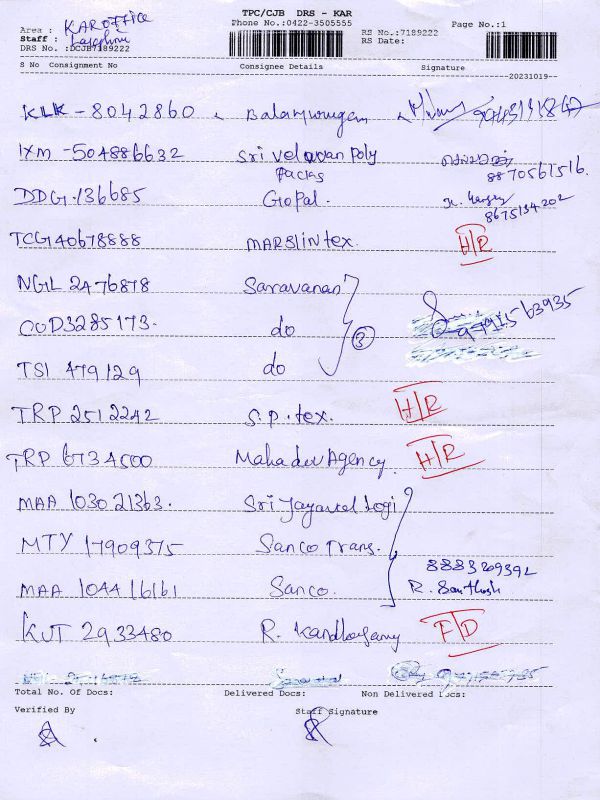 TPC/CJB DRS - KAR
Area : KAR OFFICE Phone No.:0422-3505555 Page No.:1
Staff : RS No.:7189222
DRS No. :DCJB7189222 RS Date:
S No Consignment No Consignee Details Signature
20231019
KLK - 8042860
IXM - 504886632 Sri velavan Poly
Packs 8870561516.
DDG.136685 Gopal. 8675134202
TCG140678888 MARSlIN tex. H/R
NGL 2476878 Saravanan
COD3285173. do (3)
TSI 479129 do
TRP 2512242 S.P.tex. H/R
TRP 6734500 Mahadev Agency. H/R
MAA 103021363.
MTY 17909375 Sanco Trans. 8883269392
MAA 104416161 Sanco. R. Santhosh
KUT 2933480 F/D
Total No. Of Docs: Delivered Docs: Non Delivered Docs:
Verified By Staff Signature